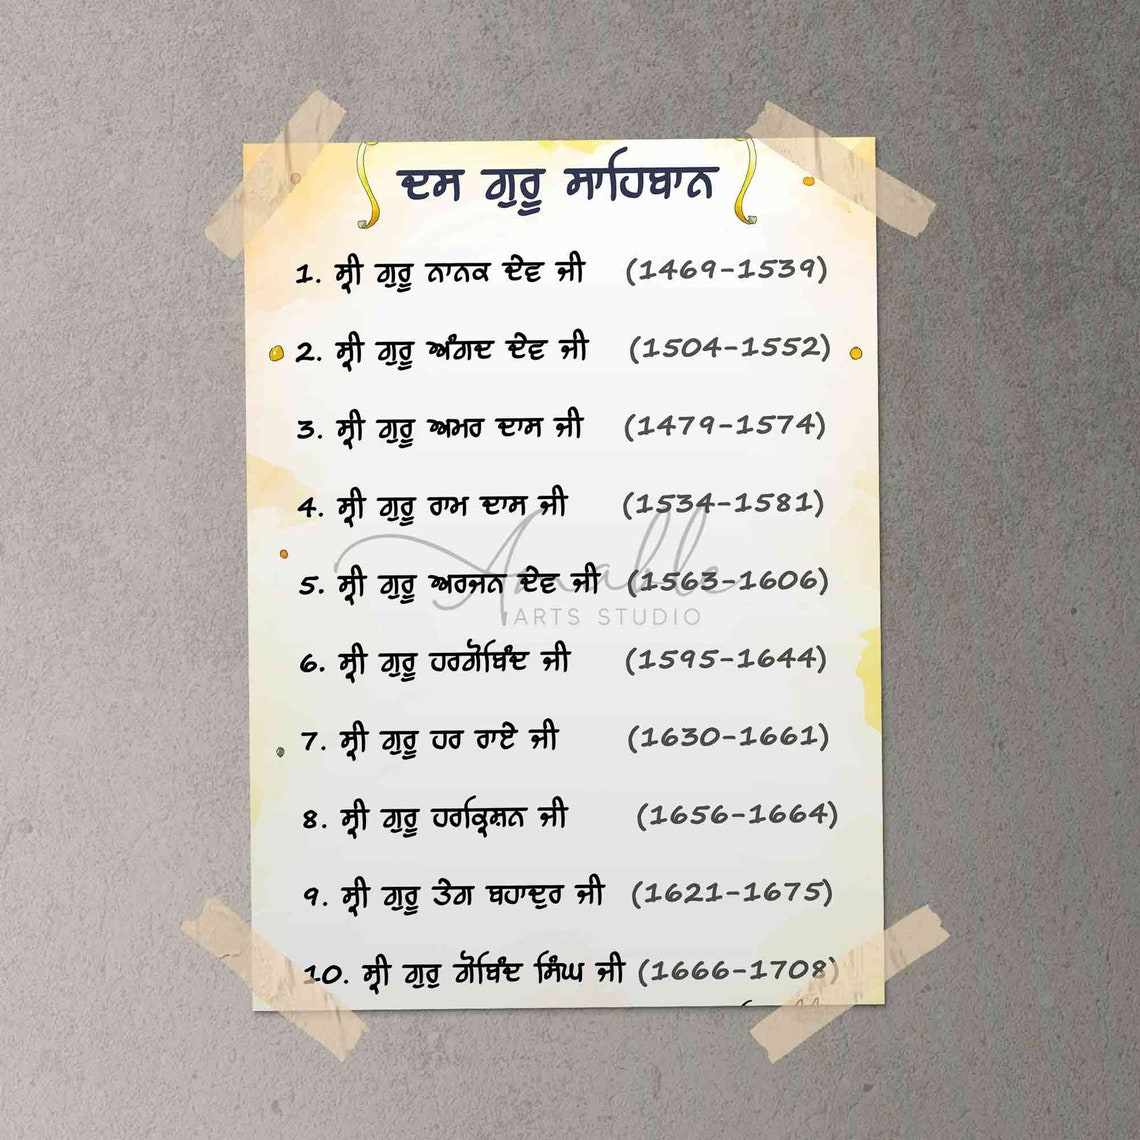 ਦਸ ਗੁਰੂ ਸਾਹਿਬਾਨ
1. ਸ੍ਰੀ ਗੁਰੂ ਨਾਨਕ ਦੇਵ ਜੀ (1469-1539)
2. ਸ੍ਰੀ ਗੁਰੂ ਅੰਗਦ ਦੇਵ ਜੀ (1504-1552)
3. ਸ੍ਰੀ ਗੁਰੂ ਅਮਰ ਦਾਸ ਜੀ (1479-1574)
4. ਸ੍ਰੀ ਗੁਰੂ ਰਾਮ ਦਾਸ ਜੀ (1534-1581)
5. ਸ੍ਰੀ ਗੁਰੂ ਅਰਜਨ ਦੇਵ ਜੀ (1563-1606)
Amable
ARTS STUDIO
6. ਸ੍ਰੀ ਗੁਰੂ ਹਰਗੋਬਿੰਦ ਜੀ (1595-1644)
7. ਸ੍ਰੀ ਗੁਰੂ ਹਰ ਰਾਏ ਜੀ (1630-1661)
8. ਸ੍ਰੀ ਗੁਰੂ ਹਰਕ੍ਰਿਸ਼ਨ ਜੀ (1656-1664)
9. ਸ੍ਰੀ ਗੁਰੂ ਤੇਗ ਬਹਾਦੁਰ ਜੀ (1621-1675)
10. ਸ੍ਰੀ ਗੁਰੁ ਗੋਬਿੰਦ ਸਿੰਘ ਜੀ (1666-1708)